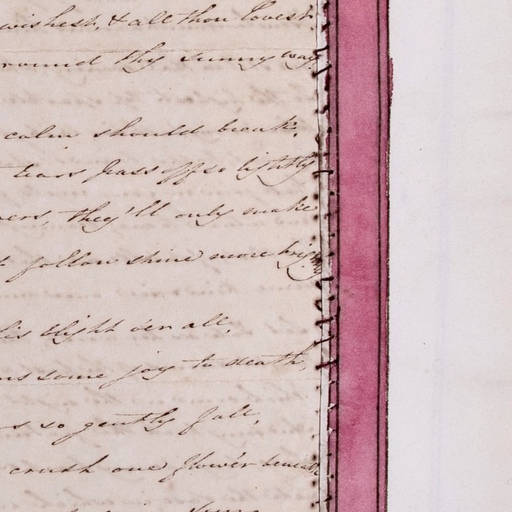 wishest, & all thou lovest
round thy sunny way
calm should break,
tears pass off so lightly
they'll only make
follow shine more brig
blight o'er all,
some joy to death,
so gently fall,
crush one flower beneath